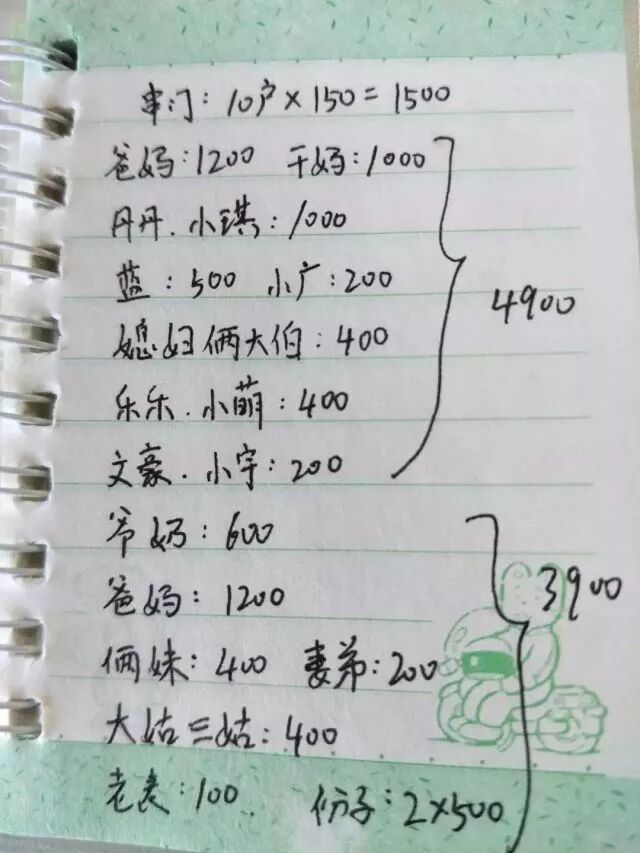 串门：10户×150=1500
爸妈：1200 干妈：1000
丹丹.小琪：1000
蓝：500 小广：200
4900
媳妇俩大伯：400
乐乐.小萌：400
文豪.小宇：200
爷奶：600
3900
爸妈：1200
俩妹：400 妻弟：200
大姑三姑：400
老表：100 份子：2×500